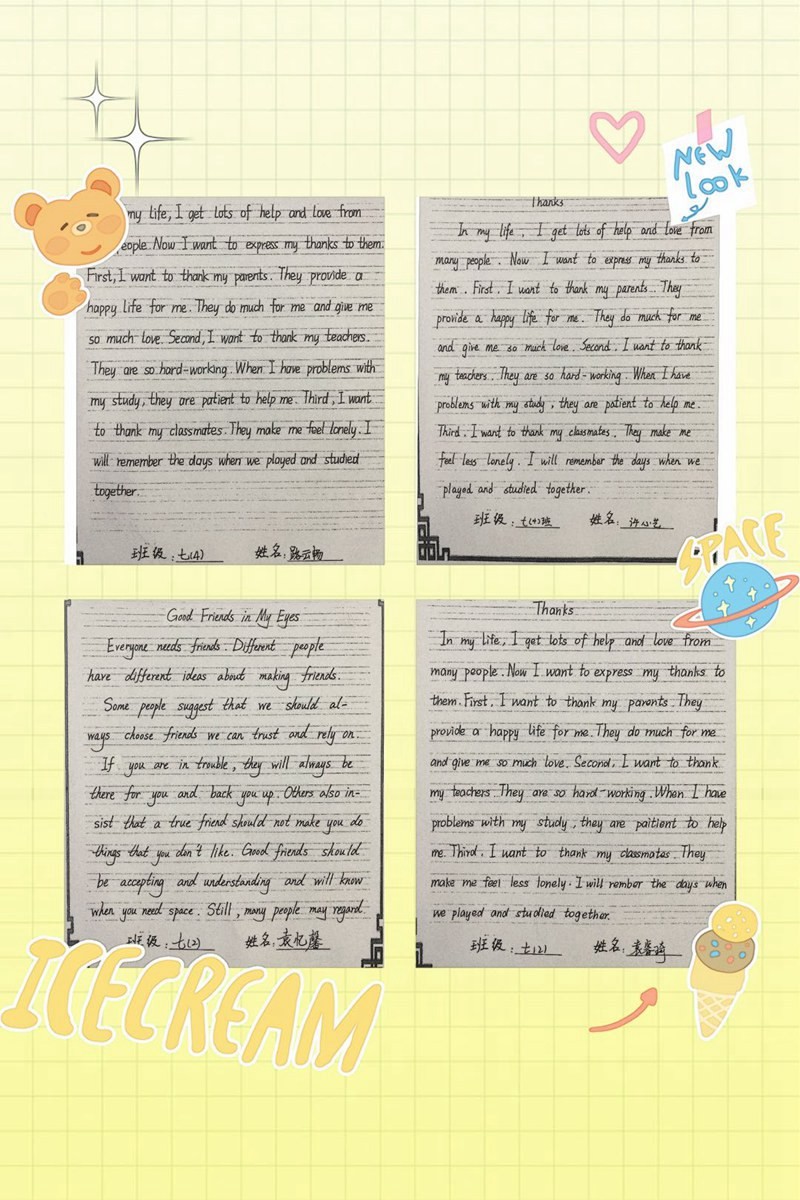 NEW
look
my life, I get lots of help and love from
people. Now I want to express my thanks to them.
First, I want to thank my parents. They provide a
happy life for me. They do much for me and give me
so much love. Second, I want to thank my teachers.
They are so hard-working. When I have problems with
my study, they are patient to help me. Third, I want
to thank my classmates. They make me feel lonely. I
will remember the days when we played and studied
together.
班级: 七(4) 姓名: 路云畅
Thanks
In my life, I get lots of help and love from
many people. Now I want to express my thanks to
them. First, I want to thank my parents. They
provide a happy life for me. They do much for me
and give me so much love. Second, I want to thank
my teachers. They are so hard-working. When I have
problems with my study, they are patient to help me.
Third, I want to thank my classmates. They make me
feel less lonely. I will remember the days when we
played and studied together.
班级: 七(4)班 姓名:
SPACE
Good Friends in My Eyes
Everyone needs friends. Different people
have different ideas about making friends.
Some people suggest that we should al-
ways choose friends we can trust and rely on.
If you are in trouble, they will always be
there for you and back you up. Others also in-
sist that a true friend should not make you do
things that you don't like. Good friends should
be accepting and understanding and will know
when you need space. Still, many people may regard
班级: 七(2) 姓名: 袁忆馨
Thanks
In my life, I get lots of help and love from
many people. Now I want to express my thanks to
them. First, I want to thank my parents. They
provide a happy life for me. They do much for me
and give me so much love. Second, I want to thank
my teachers. They are so hard-working. When I have
problems with my study, they are paitient to help
me. Third, I want to thank my classmates. They
make me feel less lonely. I will rember the days when
we played and studied together.
班级: 七(2) 姓名:
ICECREAM